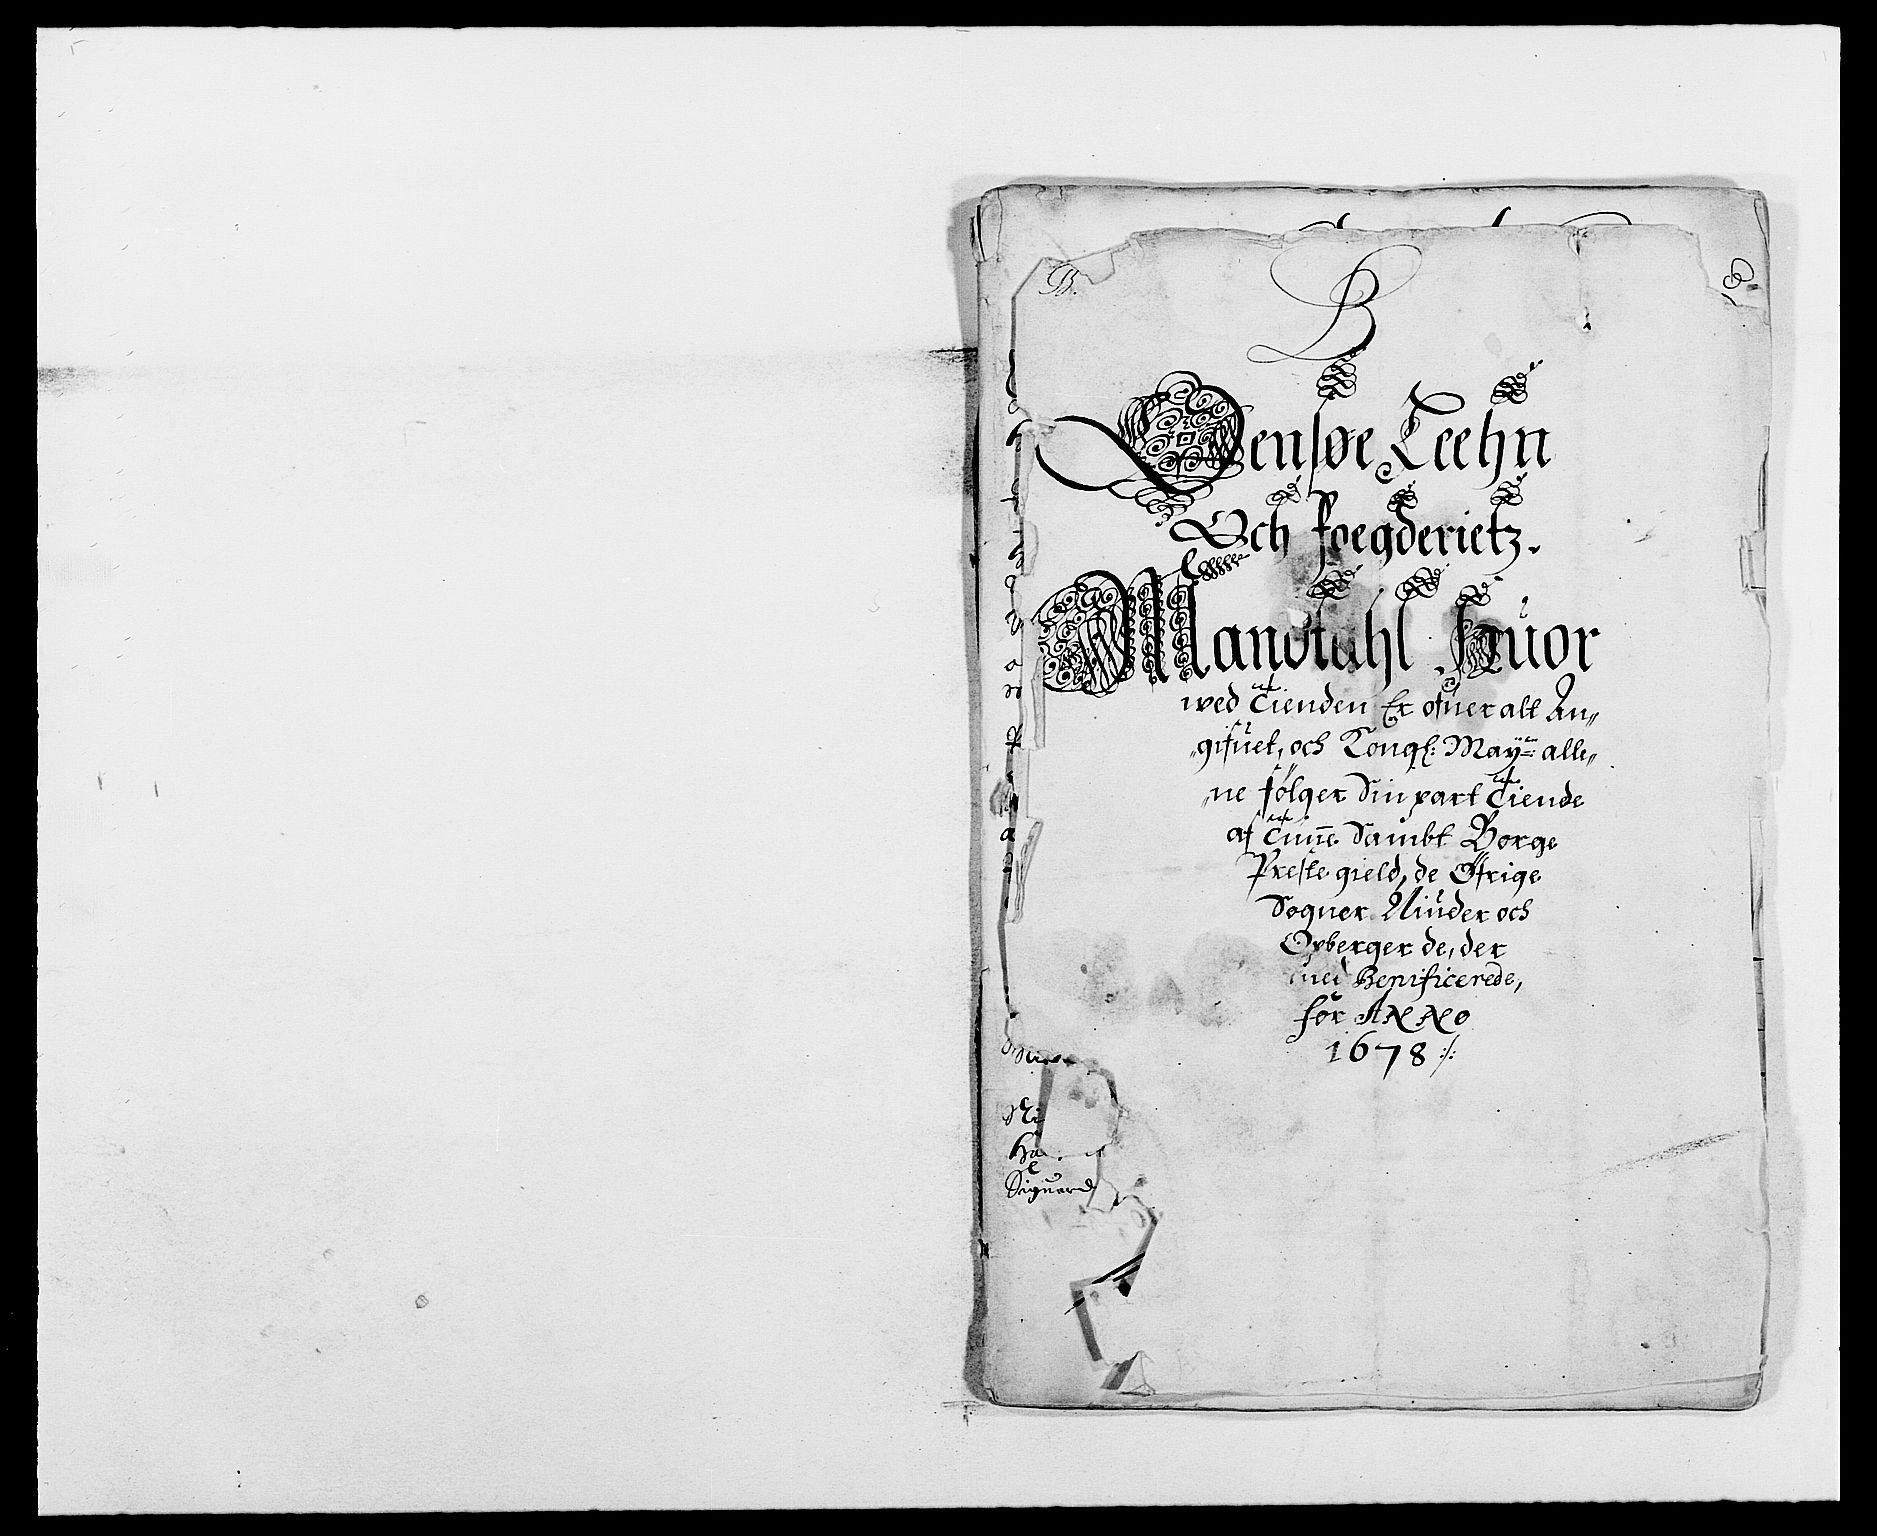 B.
B
Jensøe Leehn
Och foegderietz.
Mandtahl Huor
wed Tienden Er ofuer alt An„
„gifuet, och Kongl: May: alle„
„ne følger Sin part Tiende
af Tunne Sambt Borge
Preste gield, de Øfrige
Sogner Under och
Opberger de, der
med Benificerede,
for ANNO
1678 :/:
Ni
Ha
Siguard